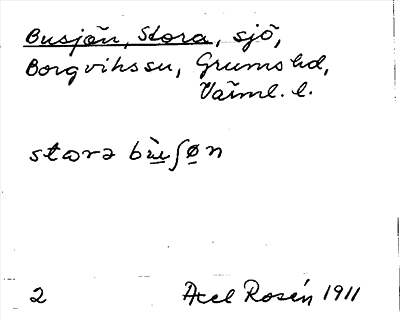 Busjön, Stora, sjö,
Borgvikssn, Grums hd,
Värml. l.
stωrə bùeʃøn
2 Axel Rosén 1911